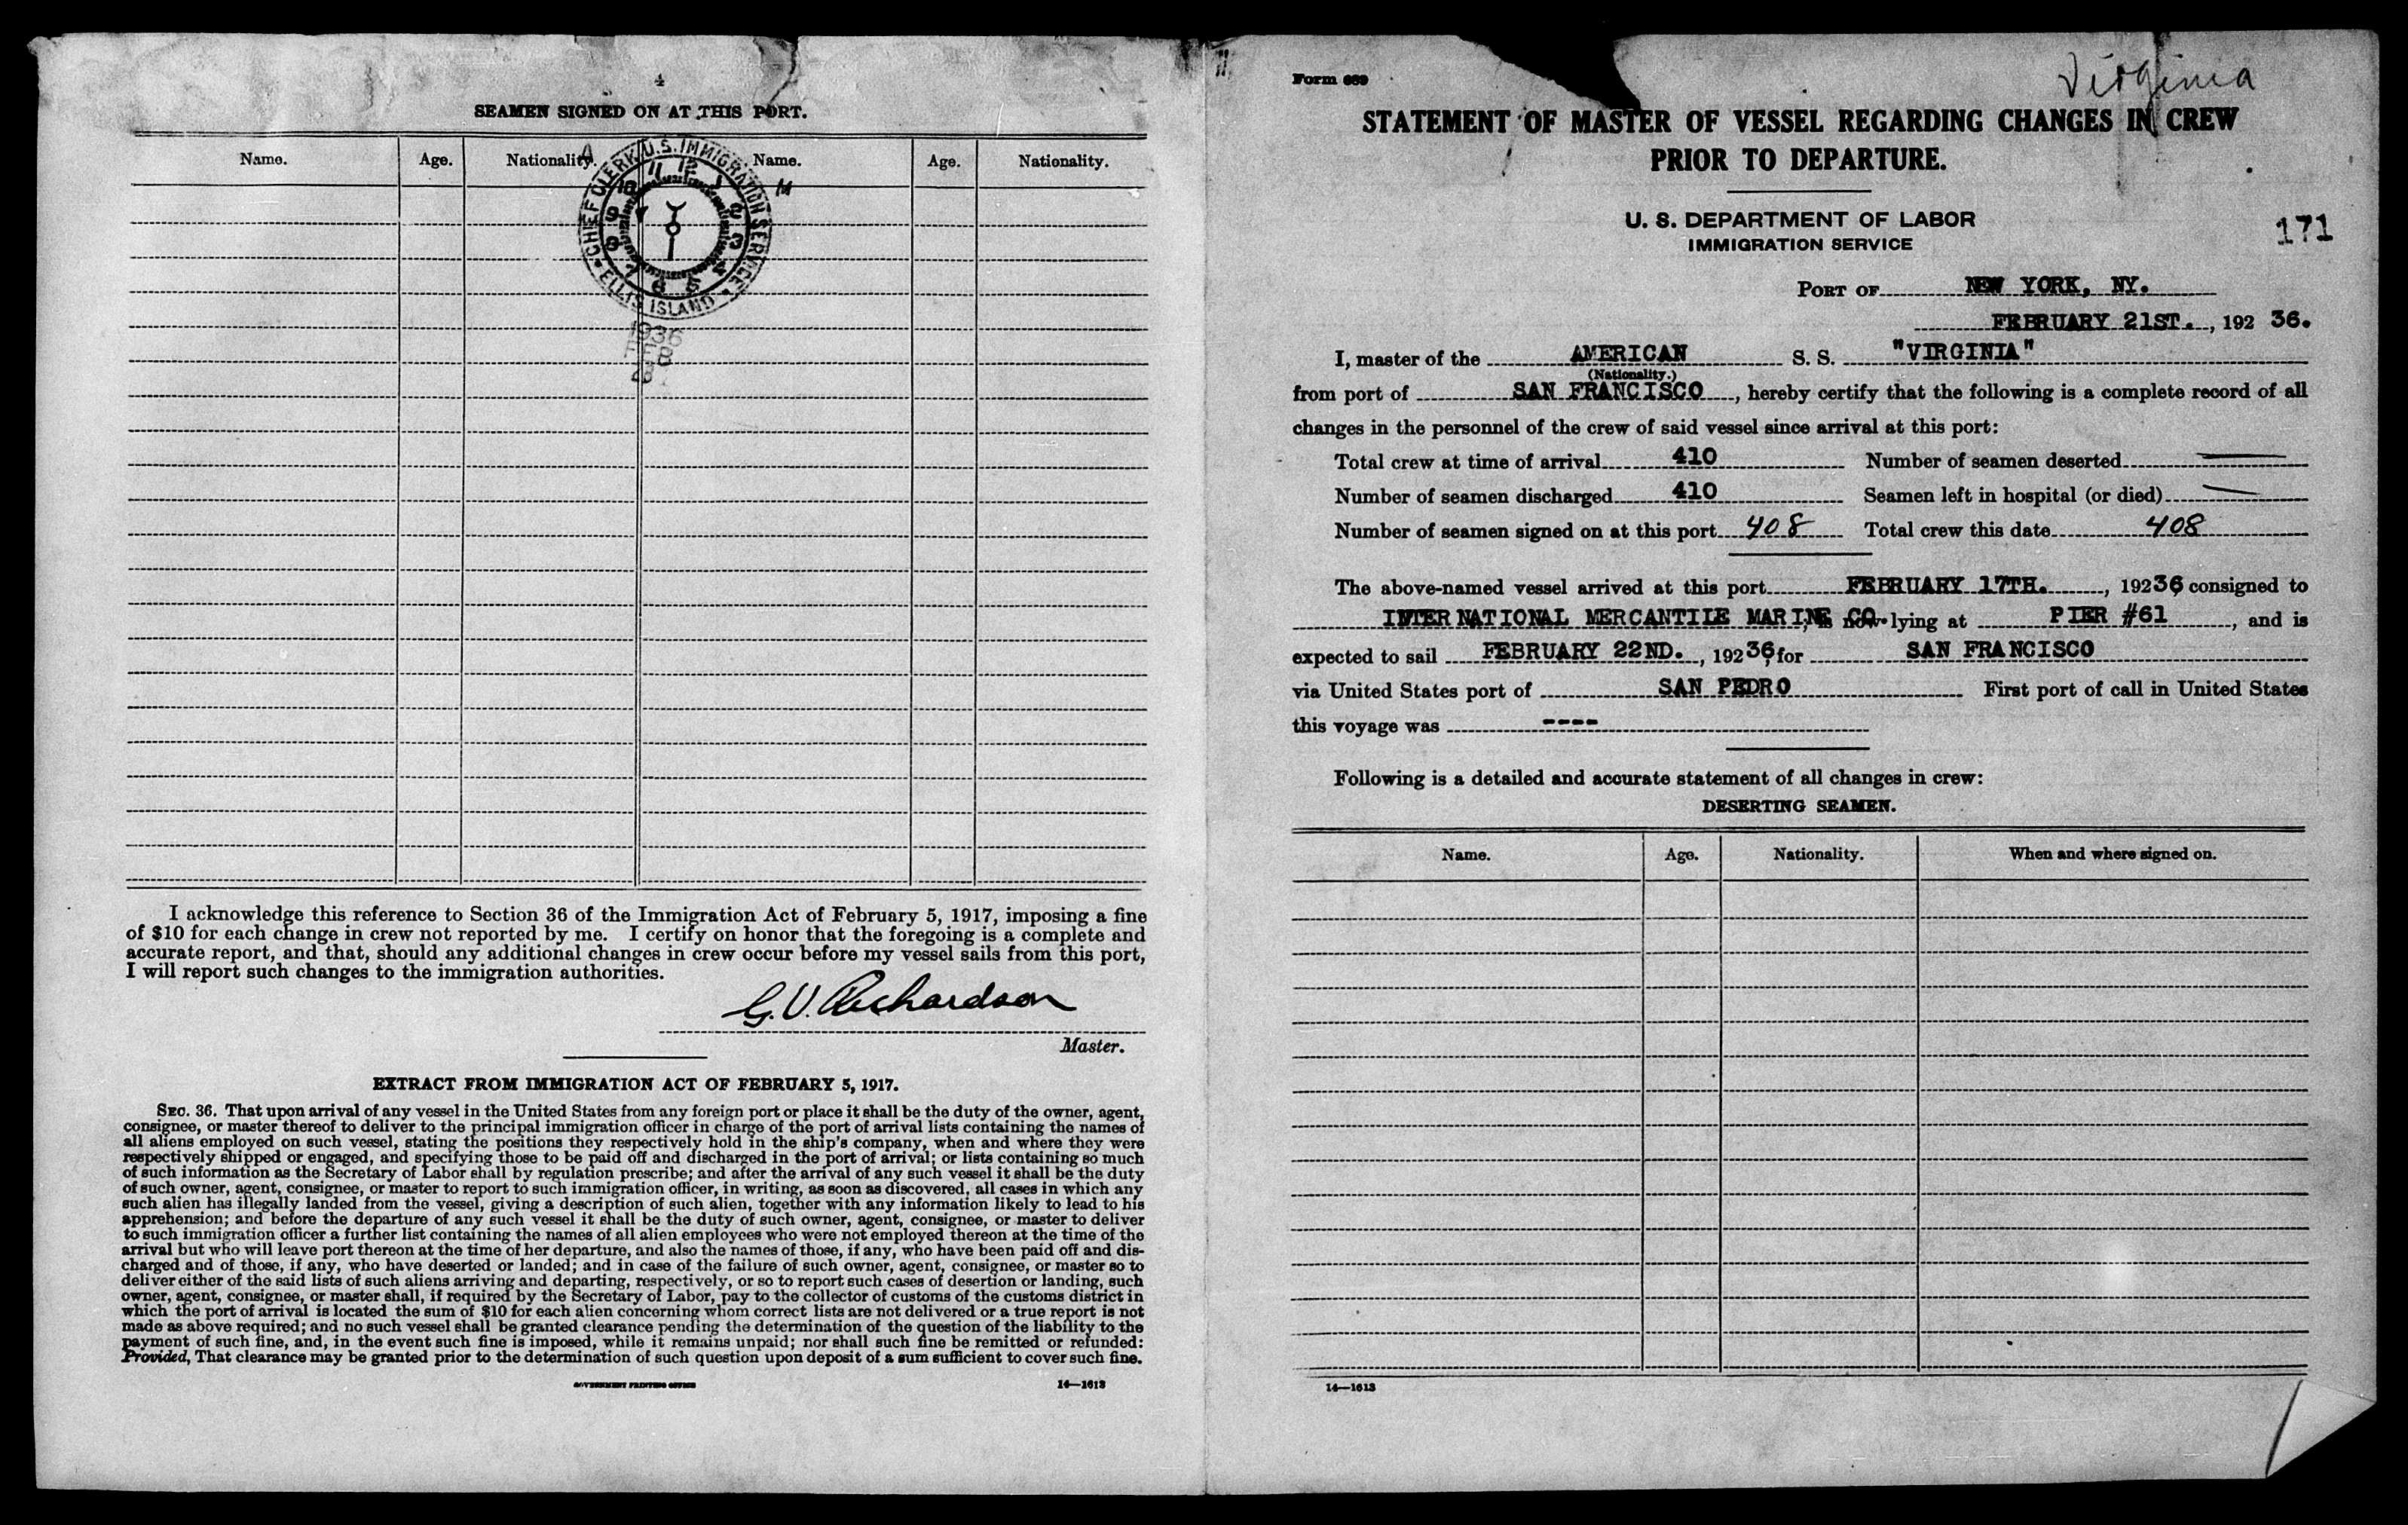 4
SEAMEN SIGNED ON AT THIS PORT.
Name. Age. Nationality. Name. Age. Nationality.
CHIEF CLERK U.S. IMMIGRATION SERVICE
ELLIS ISLAND
12 1 2 3 4 5 6 7 8 9 10 11
A M
1936
FEB
I acknowledge this reference to Section 36 of the Immigration Act of February 5, 1917, imposing a fine
of $10 for each change in crew not reported by me. I certify on honor that the foregoing is a complete and
accurate report, and that, should any additional changes in crew occur before my vessel sails from this port,
I will report such changes to the immigration authorities.
G. V. Richardson
Master.
EXTRACT FROM IMMIGRATION ACT OF FEBRUARY 5, 1917.
SEC. 36. That upon arrival of any vessel in the United States from any foreign port or place it shall be the duty of the owner, agent,
consignee, or master thereof to deliver to the principal immigration officer in charge of the port of arrival lists containing the names of
all aliens employed on such vessel, stating the positions they respectively hold in the ship's company, when and where they were
respectively shipped or engaged, and specifying those to be paid off and discharged in the port of arrival; or lists containing so much
of such information as the Secretary of Labor shall by regulation prescribe; and after the arrival of any such vessel it shall be the duty
of such owner, agent, consignee, or master to report to such immigration officer, in writing, as soon as discovered, all cases in which any
such alien has illegally landed from the vessel, giving a description of such alien, together with any information likely to lead to his
apprehension; and before the departure of any such vessel it shall be the duty of such owner, agent, consignee, or master to deliver
to such immigration officer a further list containing the names of all alien employees who were not employed thereon at the time of the
arrival but who will leave port thereon at the time of her departure, and also the names of those, if any, who have been paid off and dis-
charged and of those, if any, who have deserted or landed; and in case of the failure of such owner, agent, consignee, or master so to
deliver either of the said lists of such aliens arriving and departing, respectively, or so to report such cases of desertion or landing, such
owner, agent, consignee, or master shall, if required by the Secretary of Labor, pay to the collector of customs of the customs district in
which the port of arrival is located the sum of $10 for each alien concerning whom correct lists are not delivered or a true report is not
made as above required; and no such vessel shall be granted clearance pending the determination of the question of the liability to the
payment of such fine, and, in the event such fine is imposed, while it remains unpaid; nor shall such fine be remitted or refunded:
Provided, That clearance may be granted prior to the determination of such question upon deposit of a sum sufficient to cover such fine.
GOVERNMENT PRINTING OFFICE 14—1613
Form 689
Virginia
STATEMENT OF MASTER OF VESSEL REGARDING CHANGES IN CREW
PRIOR TO DEPARTURE.
U. S. DEPARTMENT OF LABOR
IMMIGRATION SERVICE
171
PORT OF NEW YORK, NY.
FEBRUARY 21ST. , 192 36.
I, master of the AMERICAN S. S. "VIRGINIA"
(Nationality.)
from port of SAN FRANCISCO, hereby certify that the following is a complete record of all
changes in the personnel of the crew of said vessel since arrival at this port:
Total crew at time of arrival 410 Number of seamen deserted
Number of seamen discharged 410 Seamen left in hospital (or died)
Number of seamen signed on at this port 408 Total crew this date 408
The above-named vessel arrived at this port FEBRUARY 17TH. , 19236, consigned to
INTERNATIONAL MERCANTILE MARINE CO., is now lying at PIER #61, and is
expected to sail FEBRUARY 22ND. , 19236, for SAN FRANCISCO
via United States port of SAN PEDRO First port of call in United States
this voyage was ----
Following is a detailed and accurate statement of all changes in crew:
DESERTING SEAMEN.
Name. Age. Nationality. When and where signed on.
14—1613